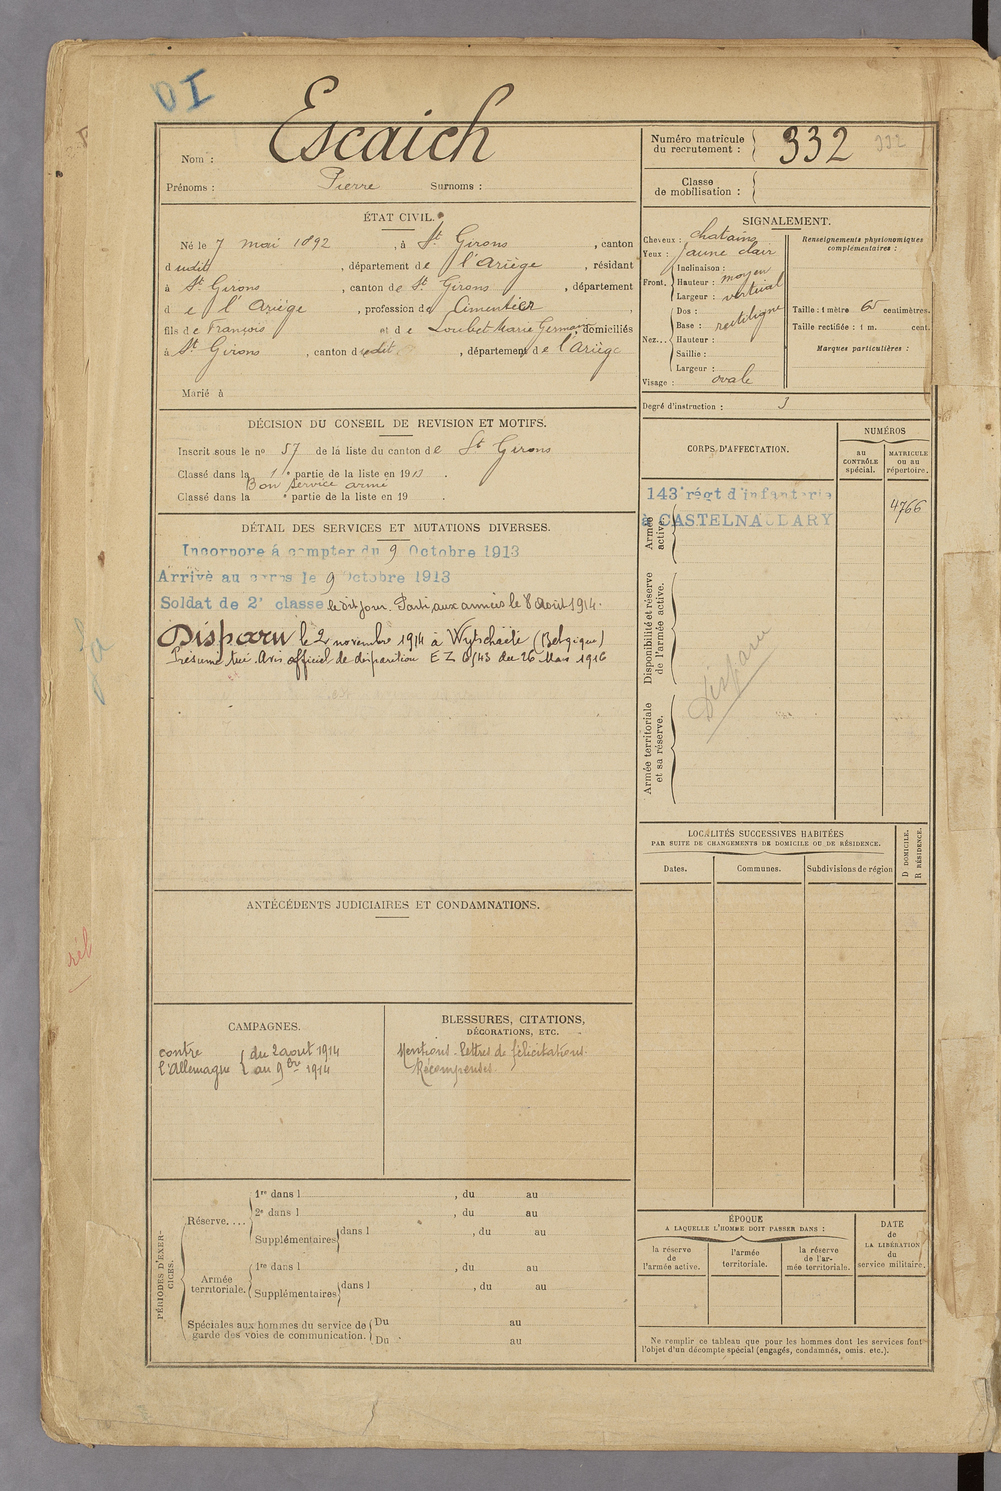 DI
Nom : Escaich
Prénoms : Pierre Surnoms :
Numéro matricule
du recrutement : 332 332
Classe
de mobilisation :
ÉTAT CIVIL.
Né le 7 mai 1892 , à St Girons , canton
dudit , département de l'Ariège , résidant
à St Girons , canton de St Girons , département
de l'Ariège , profession de Cimentier
fils de François et de Loubet Marie Germaine, domiciliés
à St Girons , canton dudit , département de l'Ariège
Marié à
SIGNALEMENT.
Cheveux : chatains
Yeux : jaune clair
Front. Inclinaison :
Hauteur : moyen
Largeur : vertical
Nez... Dos :
Base : rectiligne
Hauteur :
Saillie :
Largeur :
Visage : ovale
Renseignements physionomiques
complémentaires :
Taille : 1 mètre 65 centimètres.
Taille rectifiée : 1 m. cent.
Marques particulières :
Degré d'instruction : 3
DÉCISION DU CONSEIL DE REVISION ET MOTIFS.
Inscrit sous le no 57 de la liste du canton de St Girons
Classé dans la 1e partie de la liste en 1913
Bon Service armé
Classé dans la e partie de la liste en 19 .
DÉTAIL DES SERVICES ET MUTATIONS DIVERSES.
Incorporé à compter du 9 Octobre 1913
Arrivé au corps le 9 Octobre 1913
Soldat de 2e classe ledit jour. Parti aux armées le 8 Août 1914.
Disparu le 2 novembre 1914 à Wytschaëte (Belgique)
Présumé tué. Avis officiel de disparition E Z 6/43 du 26 Mars 1916
CORPS D'AFFECTATION.
NUMÉROS
au
CONTRÔLE
spécial.
MATRICULE
ou au
répertoire.
Armée
active.
143e régt d'infanterie
à CASTELNAUDARY
4766
Disponibilité et réserve
de l'armée active.
Disparu
Armée territoriale
et sa réserve.
LOCALITÉS SUCCESSIVES HABITÉES
PAR SUITE DE CHANGEMENTS DE DOMICILE OU DE RÉSIDENCE.
Dates.
Communes.
Subdivisions de région
D DOMICILE.
R RÉSIDENCE.
ANTÉCÉDENTS JUDICIAIRES ET CONDAMNATIONS.
CAMPAGNES.
contre
l'Allemagne
du 2 août 1914
au 9bre 1914
BLESSURES, CITATIONS,
DÉCORATIONS, ETC.
Mentions. Lettres de félicitations.
Récompenses.
PÉRIODES D'EXERCICES.
Réserve....
1re dans l , du au
2e dans l , du au
Supplémentaires dans l , du au
Armée
territoriale.
1re dans l , du au
Supplémentaires dans l , du au
Spéciales aux hommes du service de
garde des voies de communication.
Du au
Du au
ÉPOQUE
A LAQUELLE L'HOMME DOIT PASSER DANS :
la réserve
de
l'armée active.
l'armée
territoriale.
la réserve
de l'ar-
mée territoriale.
DATE
de
LA LIBÉRATION
du
service militaire.
Ne remplir ce tableau que pour les hommes dont les services font
l'objet d'un décompte spécial (engagés, condamnés, omis. etc.).